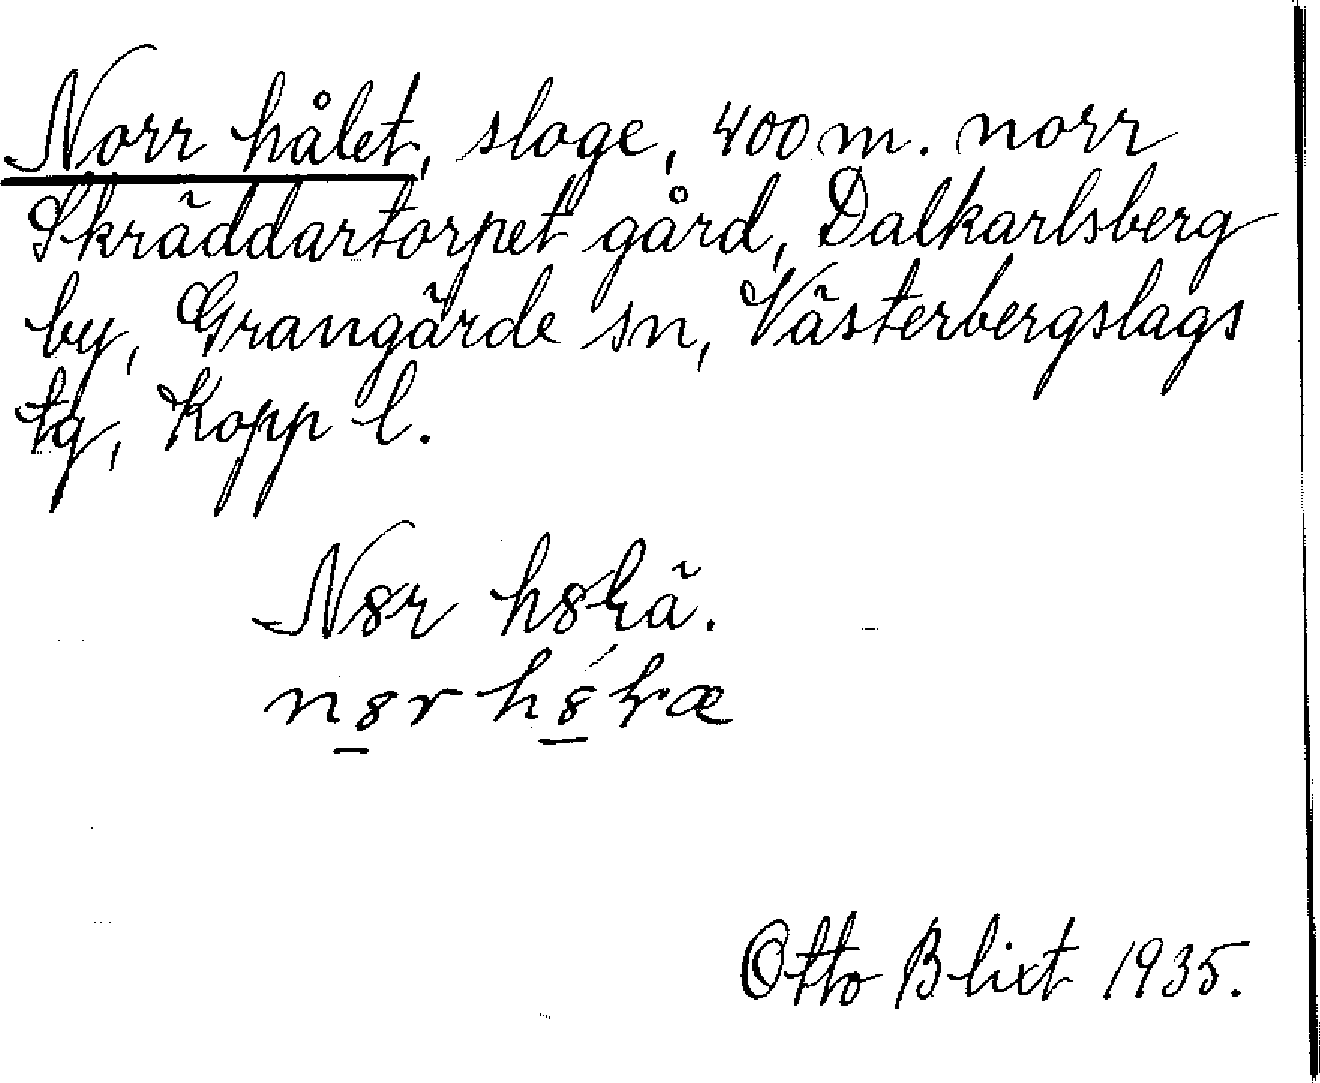 Norr hålet, sloge, 400 m. norr
Skräddartorpet gård, Dalkarlsberg
by, Grangärde sn, Västerbergslags
tg, Kopp l.
Otto Blixt 1935.